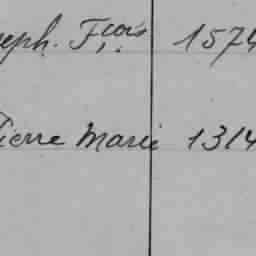 eph. Fçois 1574
ierre Marie 1314